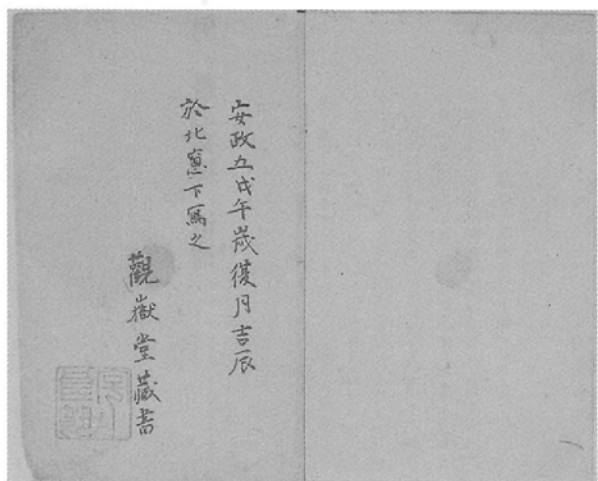 安政五戊午歳復月吉辰
於北窻下寫之
觀嶽堂藏書